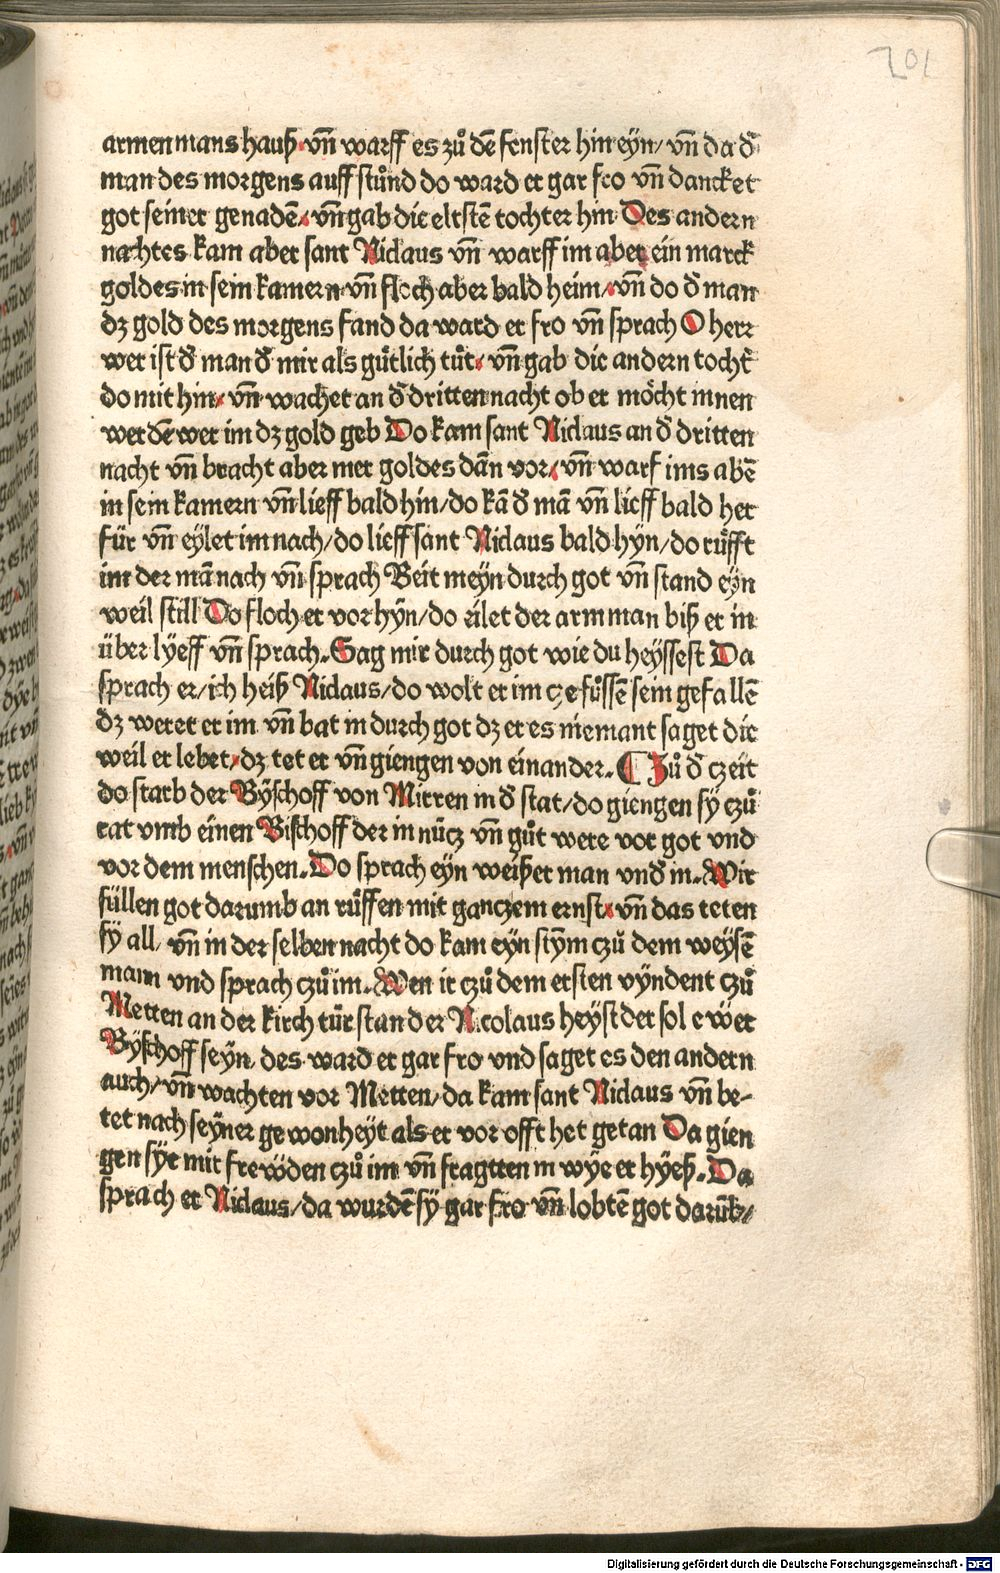 201
armen mans hauß vn̄ warff es zů dē fenster hin eÿn/ vn̄ da d̓
man des morgens auff stůnd do ward er gar fro vn̄ dancket
got seiner genadē vn̄ gab die eltstē tochter hin Des andern
nachtes kam aber sant Niclaus vn̄ warff im aber ein marck
goldes in sein kamern vn̄ floch aber bald heim/ vn̄ do d̓ man
dz gold des morgens fand da ward er fro vn̄ sprach O herr
wer ist d̓ man d̓ mir als gůtlich tůt/ vn̄ gab die andern tocht̄
do mit hin vn̄ wachet an d̓ dritten nacht ob er möcht innen
werdē wer im dz gold geb Do kam sant Niclaus an d̓ dritten
nacht vn̄ bracht aber mer goldes dān vor/ vn̄ warf ims abē
in sein kamern vn̄ lieff bald hin/do kā d̓ mā vn̄ lieff bald her
für vn̄ eÿlet im nach/do lieff sant Niclaus bald hÿn/do růfft
im der mā nach vn̄ sprach Beit meÿn durch got vn̄ stand eÿn
weil still Do floch er vor hÿn/do eilet der arm man biß er in
über lÿeff vn̄ sprach. Sag mir durch got wie du heÿssest Da
sprach er/ich heiß Niclaus/do wolt er im cze fůssē sein gefallē
dz weret er im vn̄ bat in durch got dz er es niemant saget die
weil er lebet/ dz tet er vn̄ giengen von einander. ¶ Zů d̓ czeit
do starb der Bÿschoff von Mirren in d̓ stat/do giengen sÿ czů
rat vmb einen Bischoff der in nücz vn̄ gůt were vor got vnd
vor dem menschen. Do sprach eÿn weißer man vnd̓ in. Wir
süllen got darumb an růffen mit ganczem ernst vn̄ das teten
sÿ all/ vn̄ in der selben nacht do kam eÿn stÿm czů dem weÿsē
mann vnd sprach czů im. Wen ir czů dem ersten vÿndent czů
Metten an der kirch tür stan der Nicolaus heÿst der sol ewer
Bÿschoff seÿn/ des ward er gar fro vnd saget es den andern
auch/ vn̄ wachten vor Metten/ da kam sant Niclaus vn̄ be-
tet nach seÿner gewonheÿt als er vor offt het getan Da gien
gen sÿe mit frewden czů im vn̄ fragtten in wÿe er hÿeß. Da
sprach er Niclaus/da wurdē sÿ gar fro vn̄ lobtē got darūb/
Digitalisierung gefördert durch die Deutsche Forschungsgemeinschaft - DFG